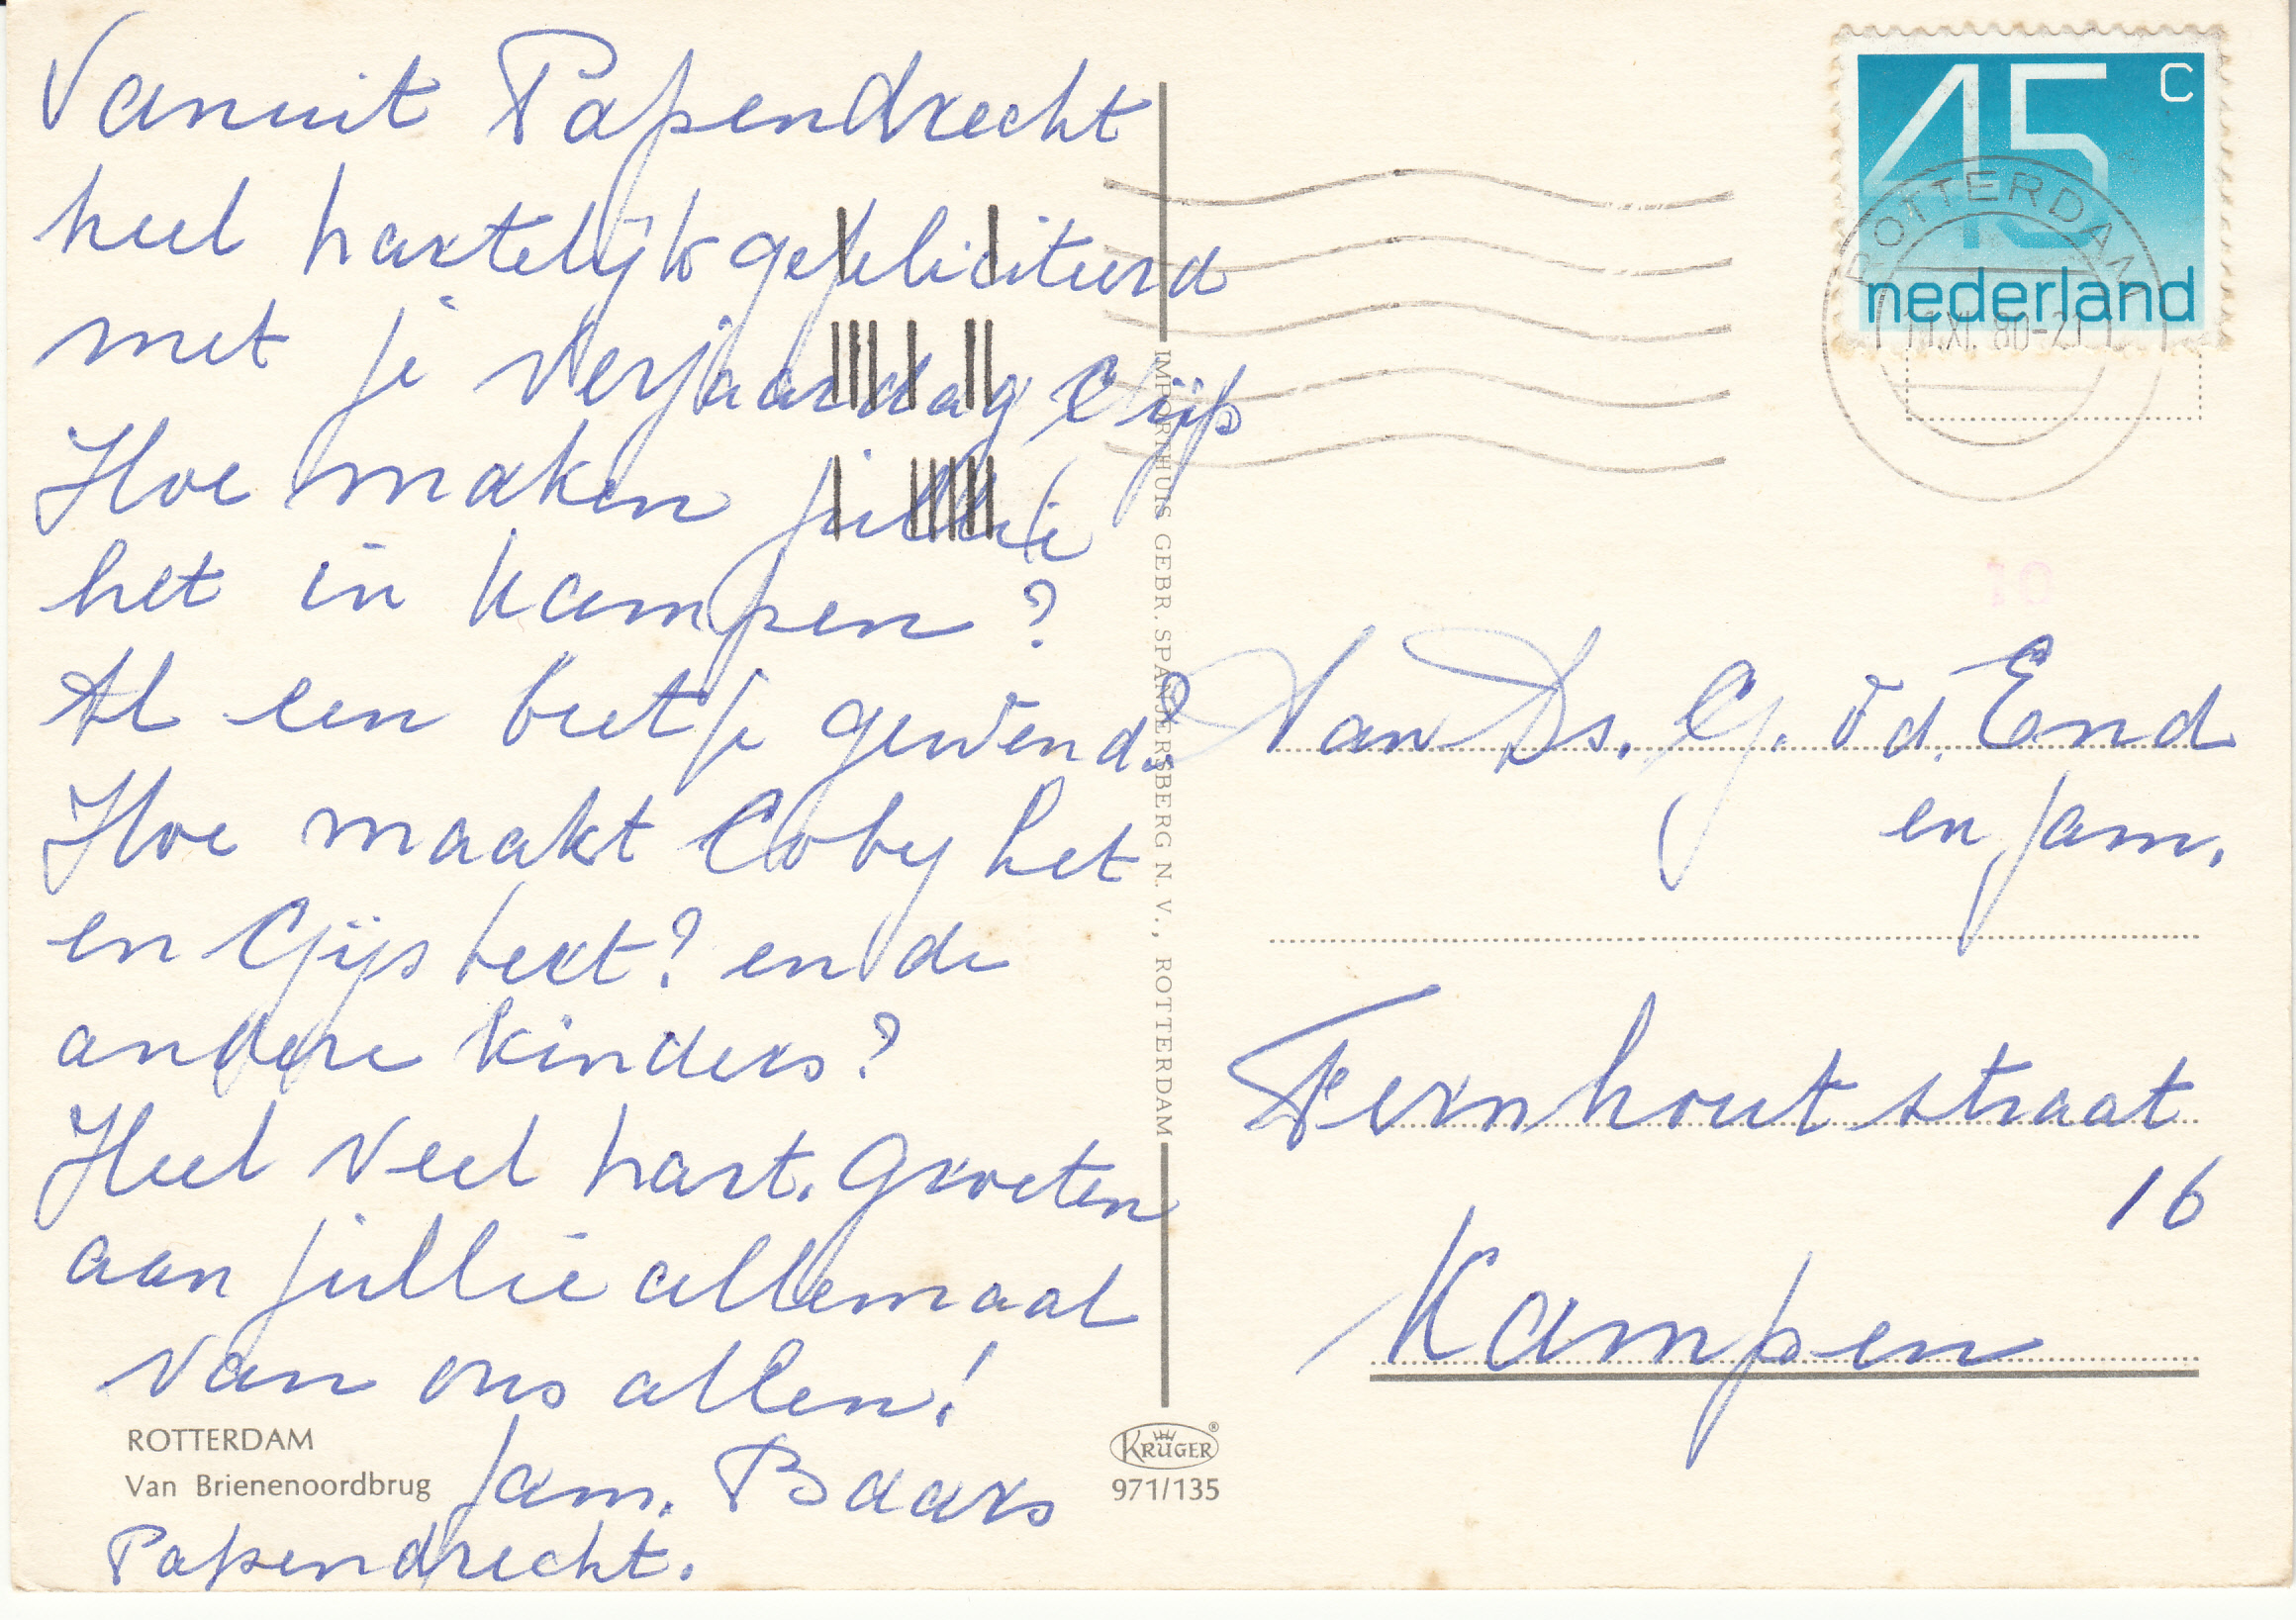 Vanuit Papendrecht
heel hartelijk gefeliciteerd
met je verjaardag Gijs
Hoe maken jullie
het in Kampen?
Al een beetje gewend?
Hoe maakt Coby het
en Gijsbert? en de
andere kinders?
Heel veel hart. groeten
aan jullie allemaal
van ons allen!
fam. Baars
Papendrecht.
ROTTERDAM
Van Brienenoordbrug
IMPORTHUIS GEBR. SPANJERSBERG N.V., ROTTERDAM
KRÜGER
971/135
45 c
nederland
ROTTERDAM
11.XI.80-21
Aan Ds. G. v d. End
en fam.
Fernhoutstraat
16
Kampen